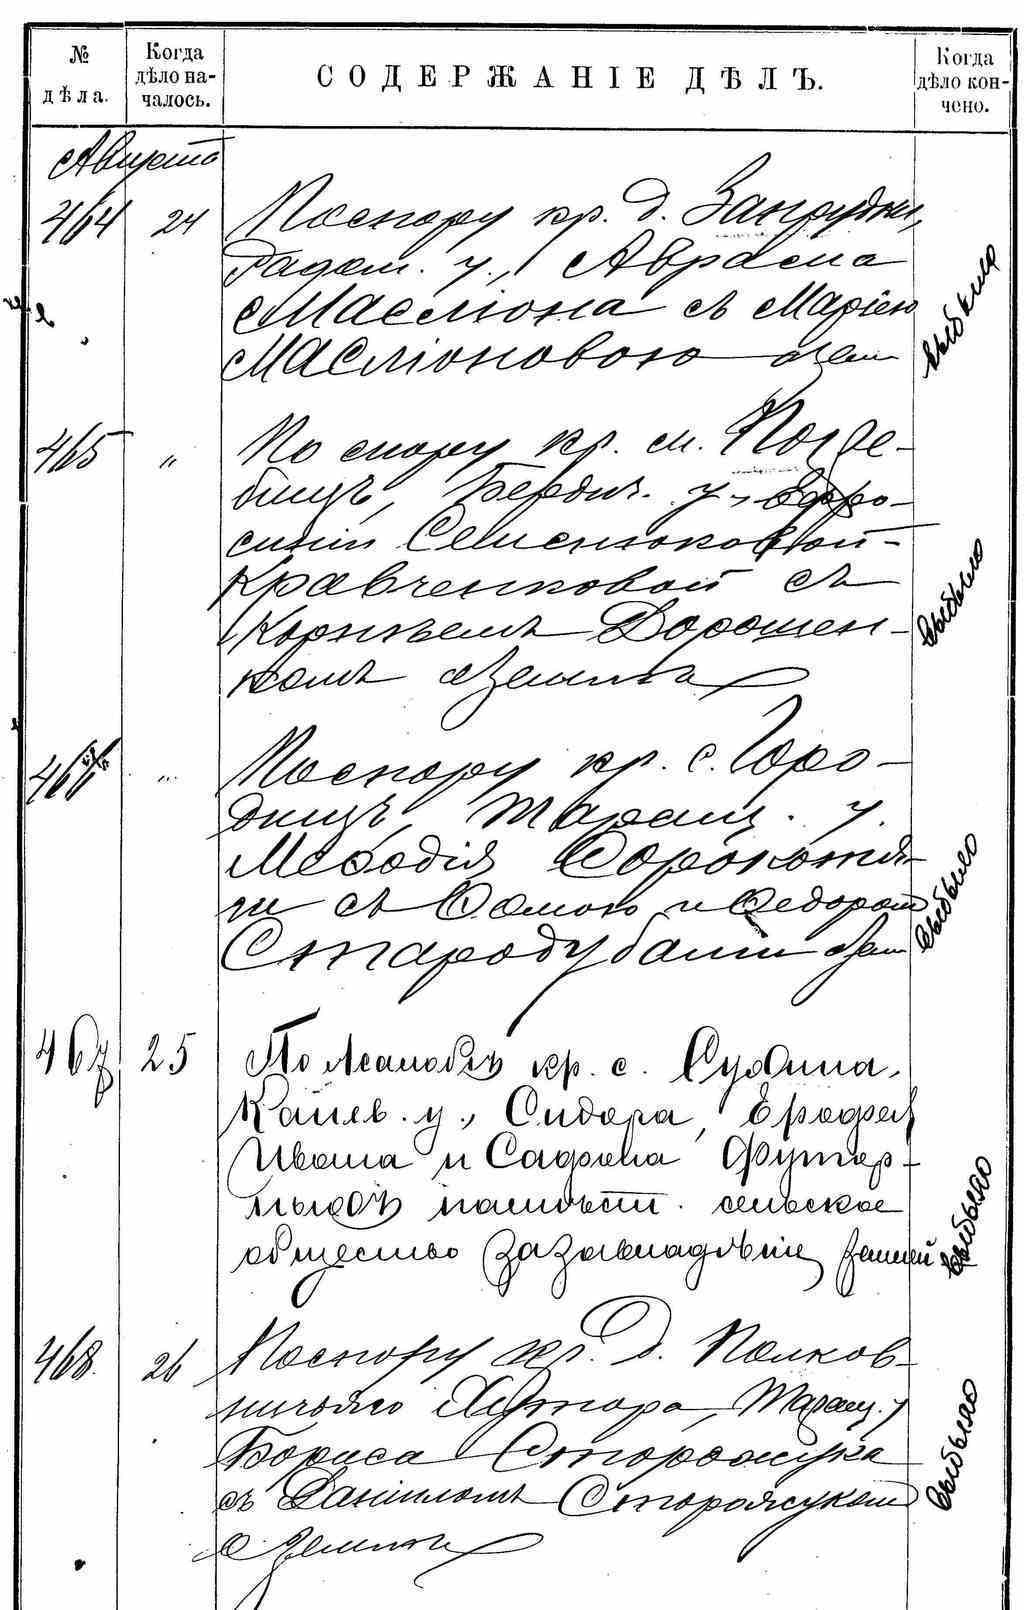 № дѣла.
Когда дѣло на-чалось.
СОДЕРЖАНІЕ ДѢЛЪ.
Когда дѣло кон-чено.
Августа
464 24 По спору кр. д. Занрудки,
Радом. у., Авраама
Масліона съ Маріею
Масліоновою о зем выбыло
465 " По спору кр. м. Погре-
бищъ, Бердич. у., Ефро-
синіи Семенюковой-
Кравченковой съ
Корнѣемъ Дорошен-
комъ о землѣ выбыло
466 " По спору кр. с. Горо-
дищъ, Таращ. у.
Меѳодія Сорокотя-
ги съ Ѳомою и Ѳедоромъ
Стародубами о зем выбыло
467 25 По жалобѣ кр. с.
Канев. у., Сидора, Ерофея
Ивана и Сафрона
на мѣстн. сельское
общество за завладѣніе землей выбыло
468. 26 По спору кр. д. Полков-
ничьяго Хутора, Таращ. у
Бориса Сторожука
съ Даніиломъ Сторожукомъ
о землѣ выбыло